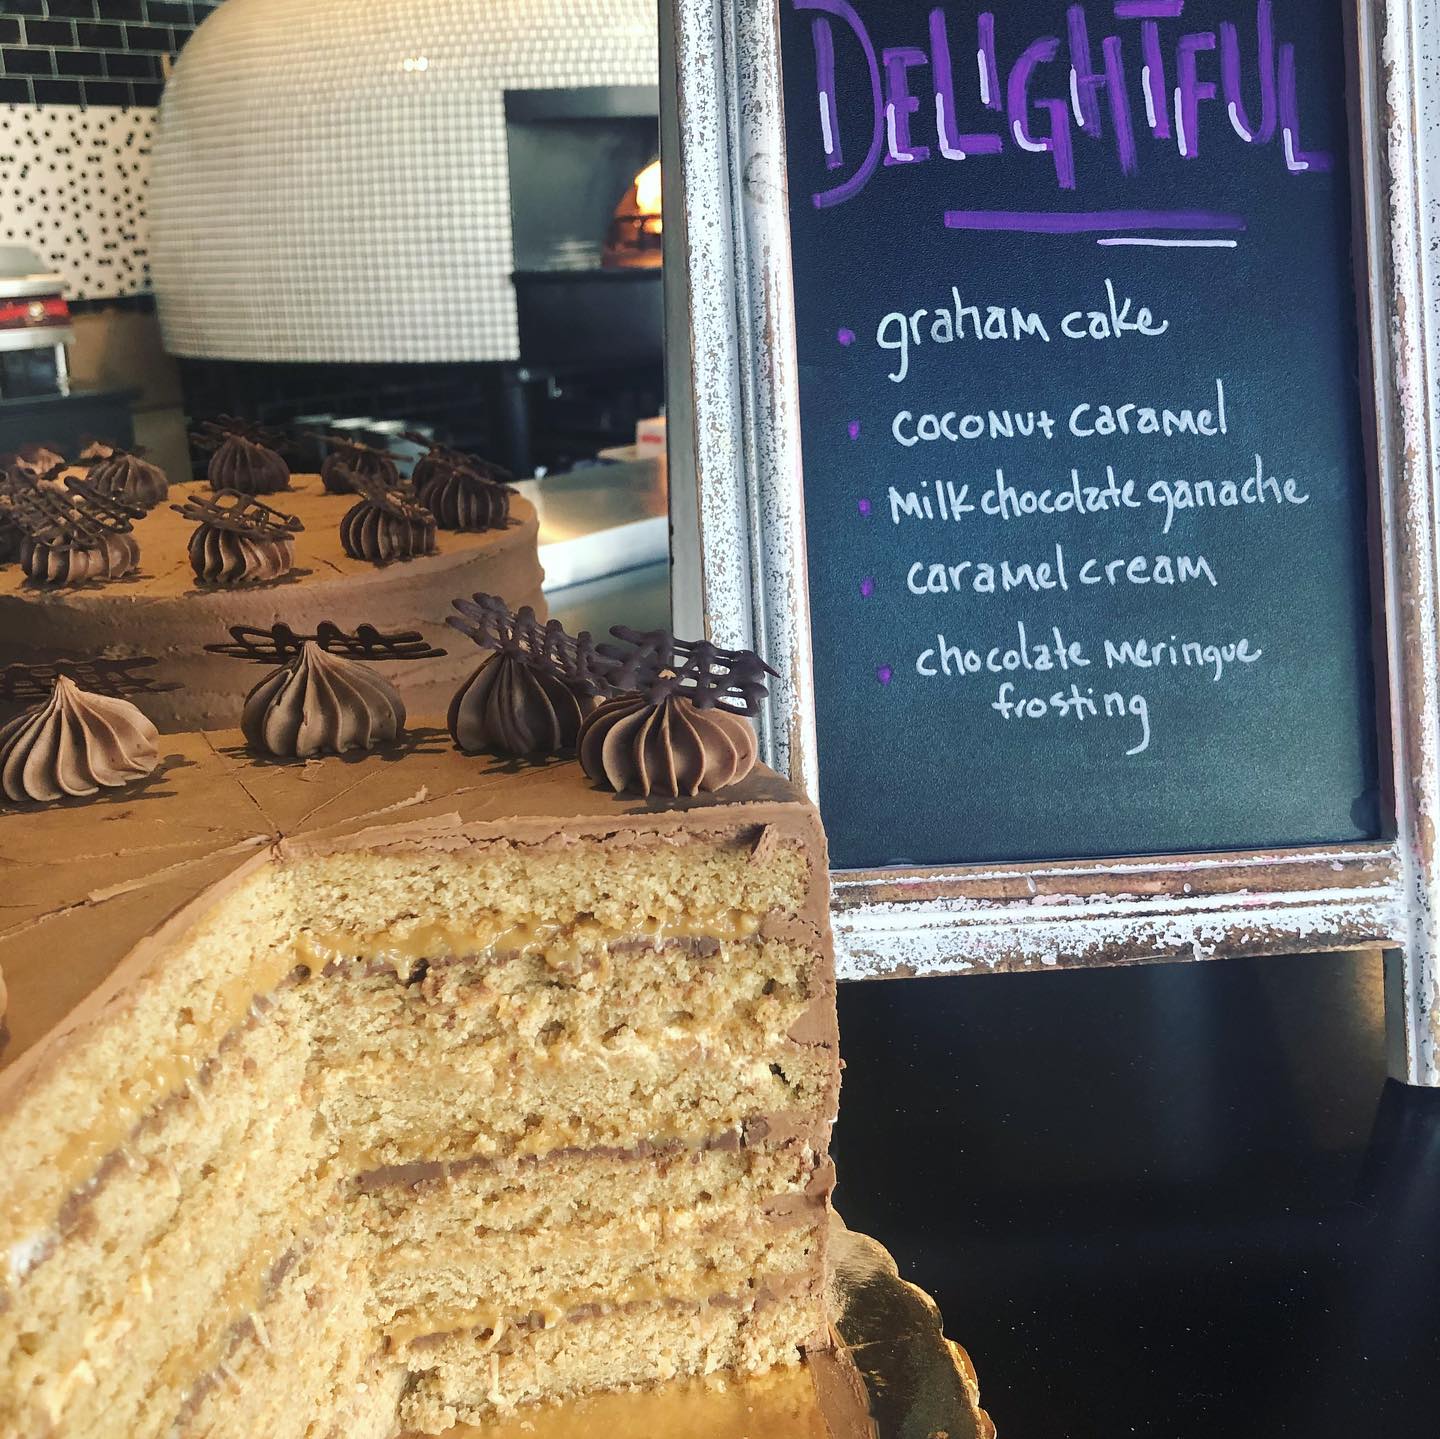 DELIGHTFUL
• graham cake
• coconut caramel
• milk chocolate ganache
• caramel cream
• chocolate meringue
frosting